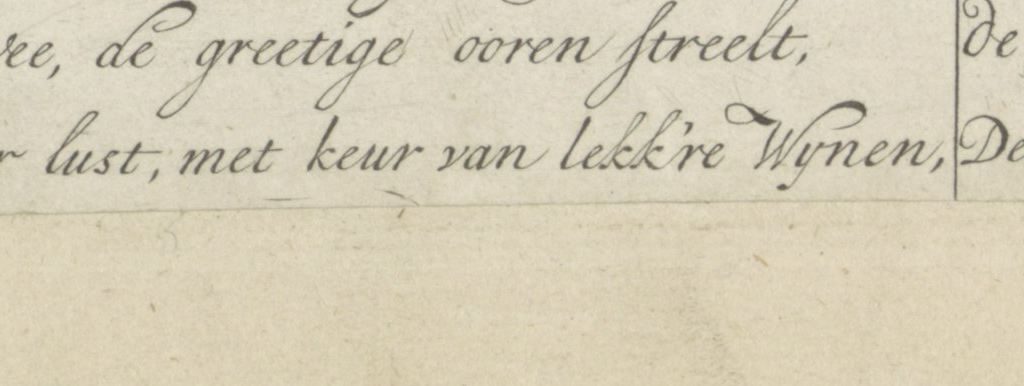 de greetige ooren streelt,
lust, met keur van lekk're Wynen,
de
De